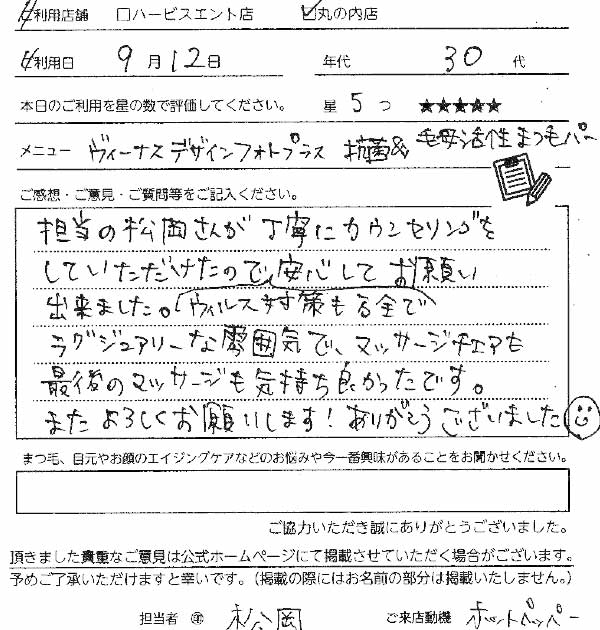 ご利用店舗 □ハービスエント店 ☑丸の内店
ご利用日 9月12日 年代 30代
本日のご利用を星の数で評価してください。 星 5つ ★★★★★
メニュー ヴィーナスデザインフォトプラス 抗菌& 毛母活性まつ毛パー
ご感想・ご意見・ご質問等をご記入ください。
担当の松岡さんが丁寧にカウンセリングを
していただけたので、安心してお願い
出来ました。ウィルス対策も万全で
ラグジュアリーな雰囲気で、マッサージチェアも
最後のマッサージも気持ち良かったです。
またよろしくお願いします！ありがとうございました
まつ毛、目元やお顔のエイジングケアなどのお悩みや今一番興味があることをお聞かせください。
ご協力いただき誠にありがとうございました。
頂きました貴重なご意見は公式ホームページにて掲載させていただく場合がございます。
予めご了承いただけますと幸いです。（掲載の際にはお名前の部分は掲載いたしません。）
担当者 松岡 ご来店動機 ホットペッパー